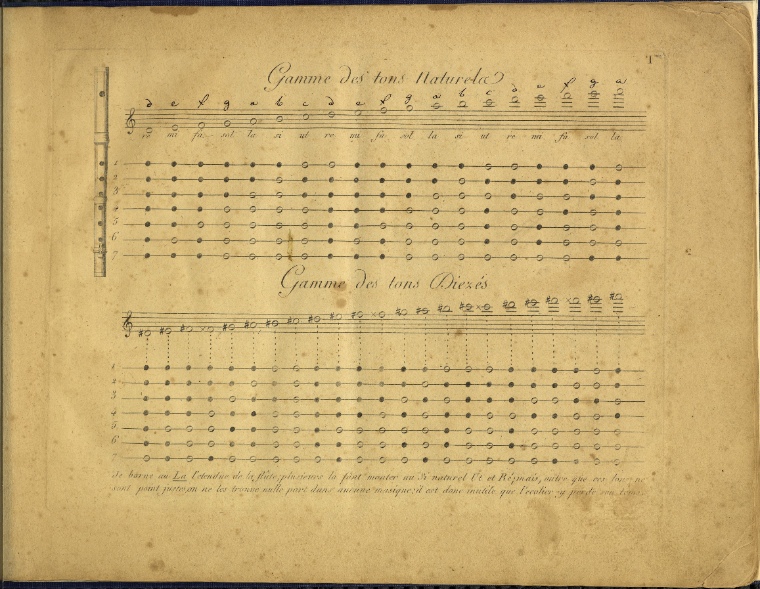 Gamme des tons Naturels
d e f g a b c d e f g a b c d e f g a
re mi fa sol la si ut re mi fa sol la si ut re mi fa sol la
1
2
3
4
5
6
7
Gamme des tons Diezés
1
2
3
4
5
6
Je borne au La l'etendue de la flûte, plusieurs la font monter au Si naturel Ut et Ré, mais, outre que ces sons ne
sont point justes, on ne les trouve nulle part dans aucune musique, il est donc inutile que l'ecolier y perde son tems.